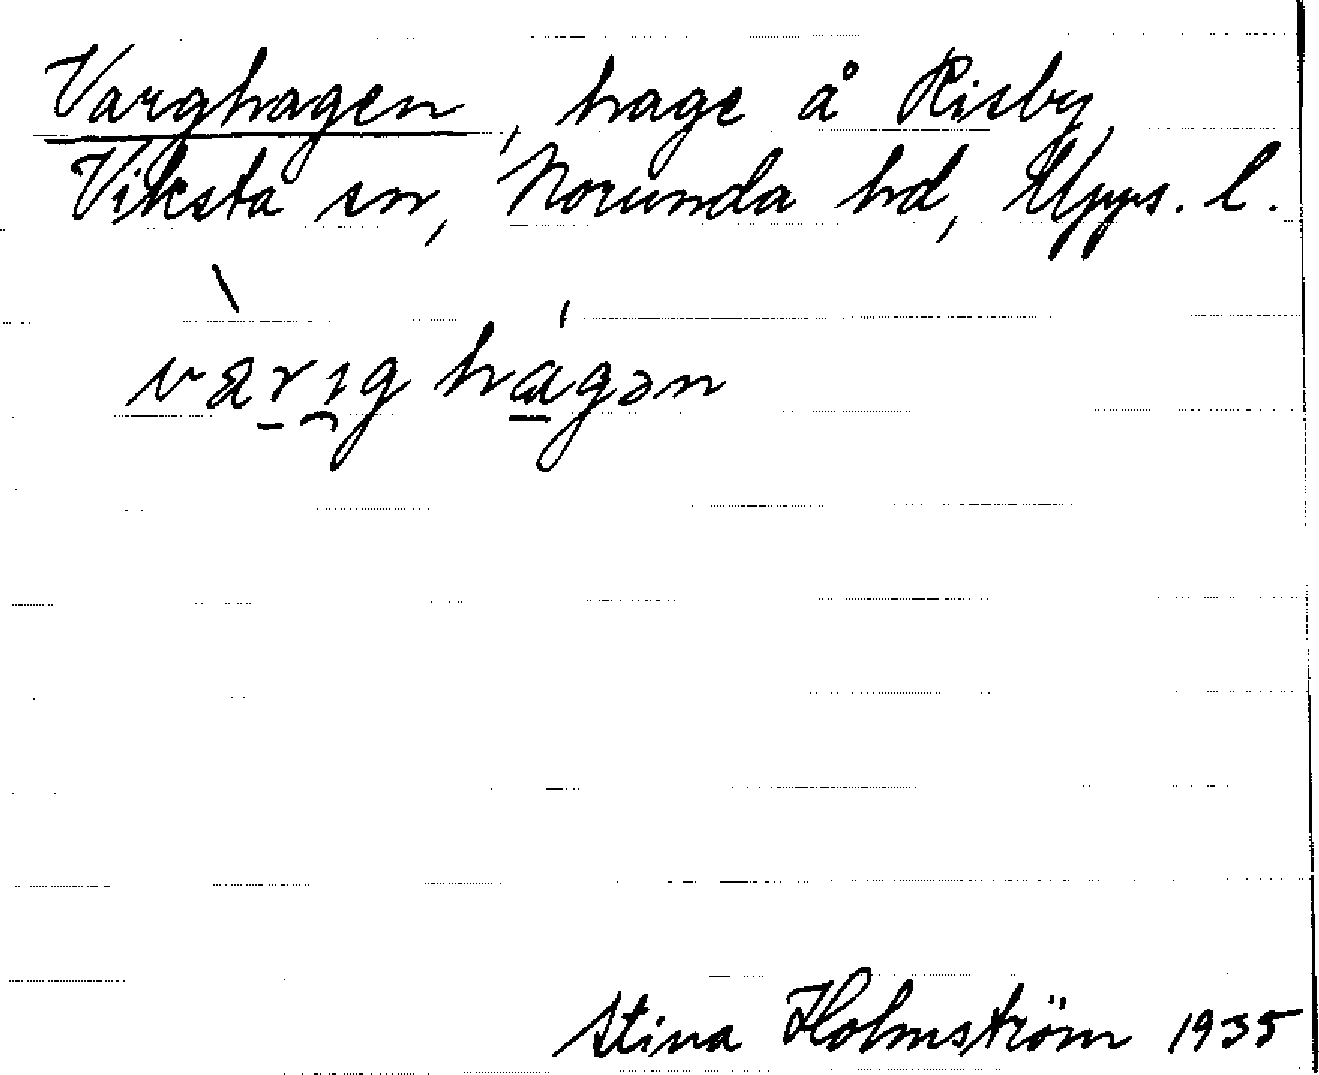 Varghagen, hage å Risby,
Viksta sn, Norunda hd, Upps. l.
værıg hágən
Stina Holmström 1935